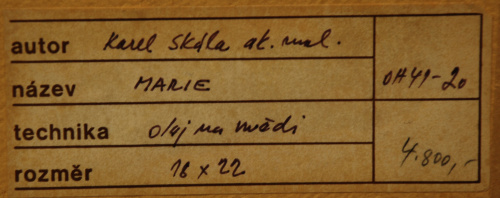 autor Karel Skála ak. mal.
název MARIE
OH49-20
technika olej na mědi
4.800,-
rozměr 18 x 22